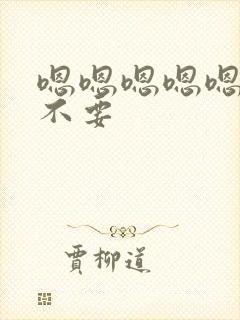 嗯嗯嗯嗯嗯
不要
贾柳道